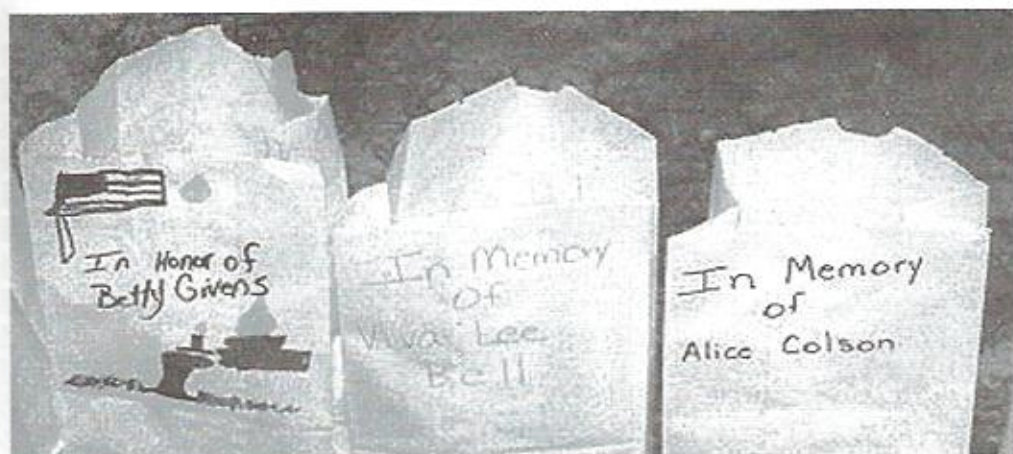 In Honor of
Betty Givens
In Memory
of
Viva Lee
Bell
In Memory
of
Alice Colson